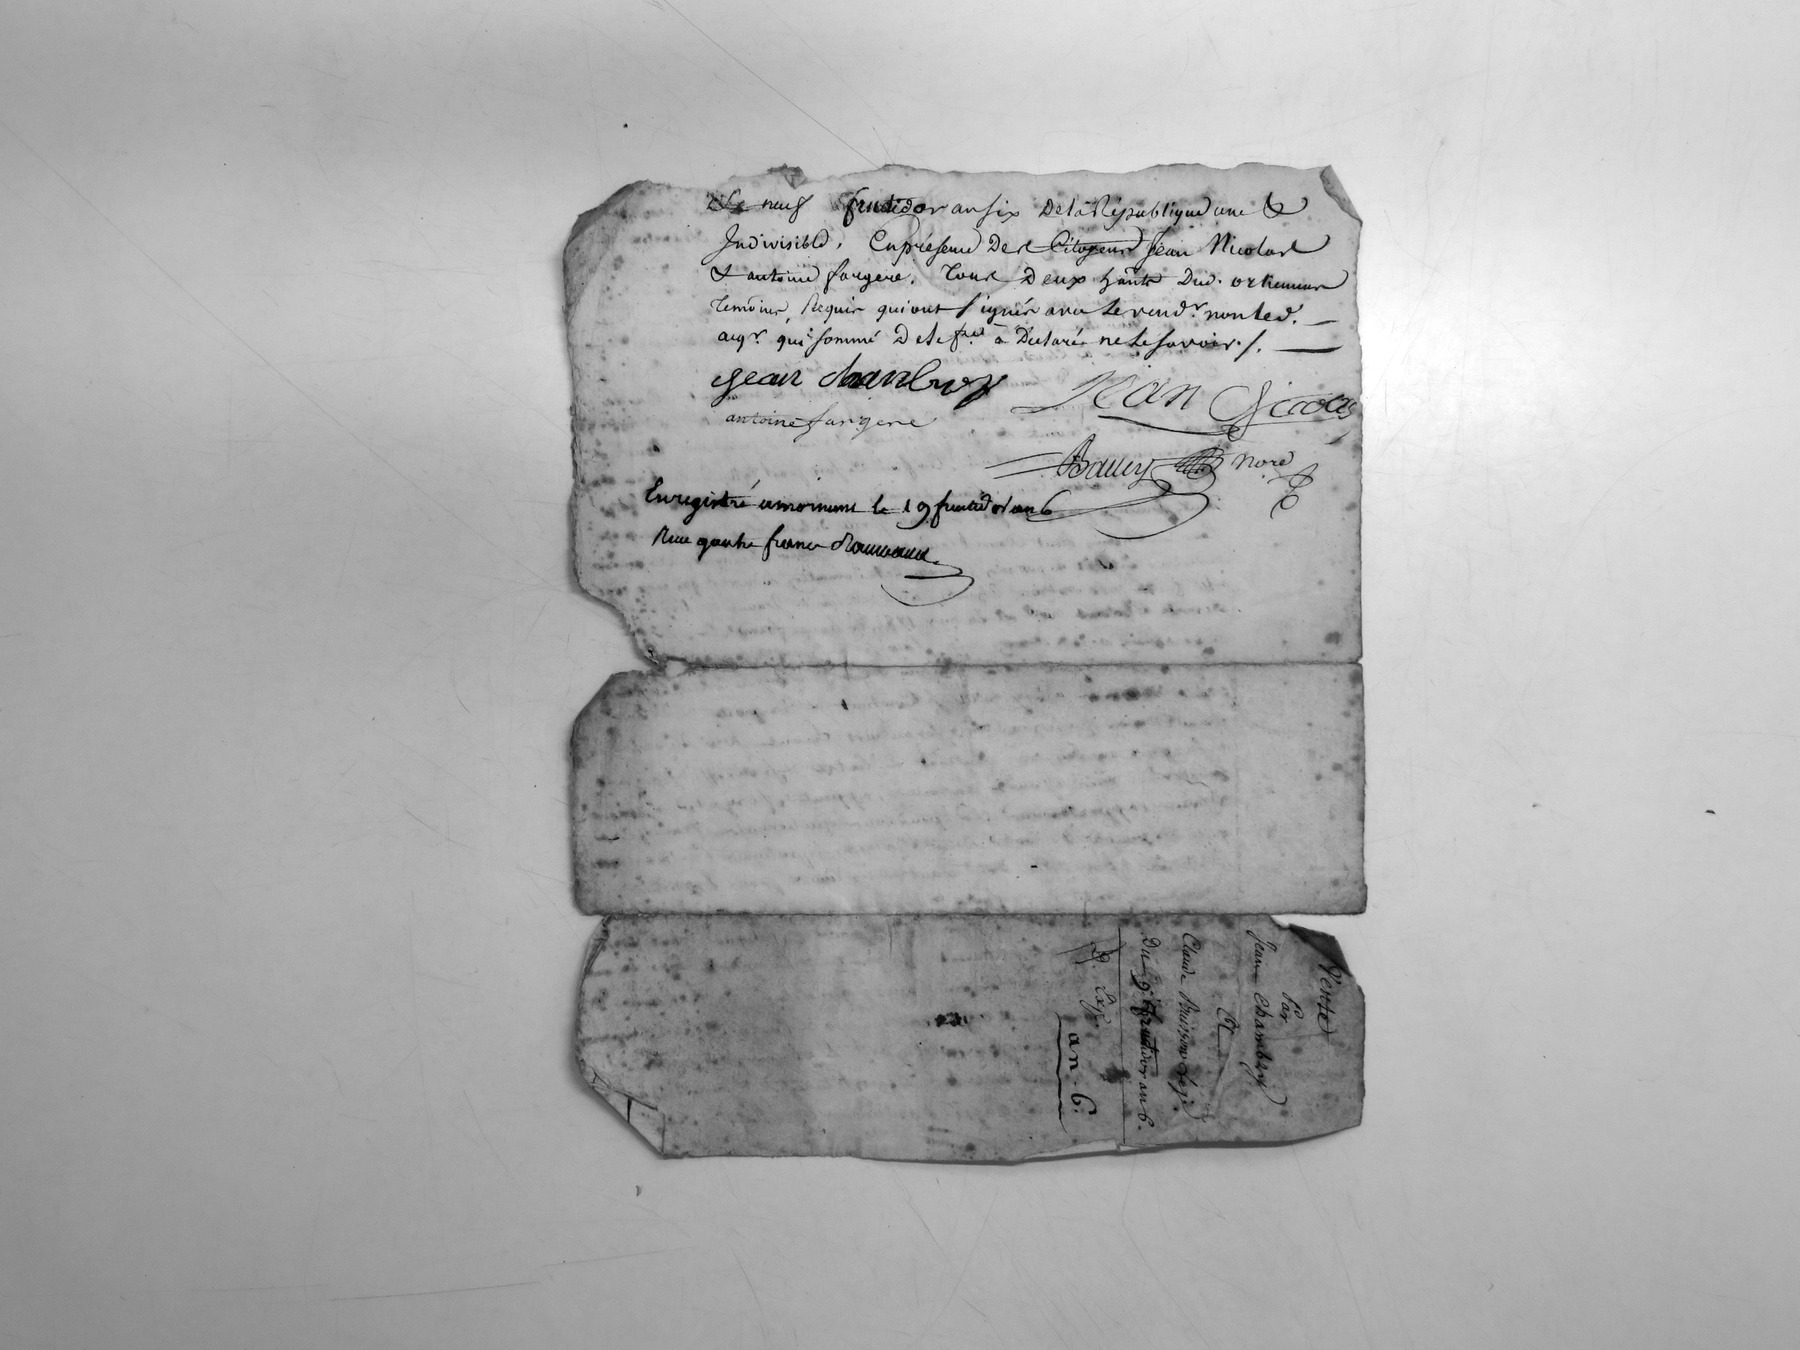 Le neuf fructidor an six De la République une &
Indivisible, En présence Des Citoyens Jean Nicolas
& antoine fargere, tous Deux hants Dud.
temoins Requis qui ont signés avec le vendr non led.
aqr qui sommé De le fre a Declaré ne le savoir ./.
jean chanbry
Jean Nicolas
antoine fargere
nore
Enregistré le 19 fructidor an 6
Reçu quatre francs
Vente
par
Jean Chambry
A
Claude Buisson
Du 9 fructidor an 6.
2. Exp.
an 6.